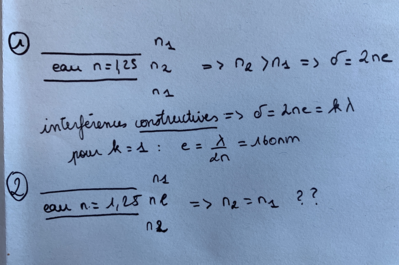 ① n₁
eau n=1,25 n₂ => n₂ > n₁ => δ = 2ne
n₁
interférences constructives => δ = 2ne = kλ
pour k = 1 : e = λ/2n = 160nm
② n₁
eau n = 1,25 ne => n₂ = n₁ ??
n₂